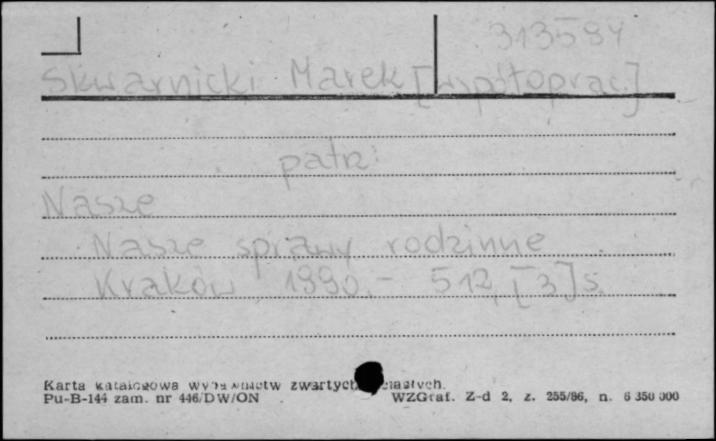 313594
Skwarnicki Marek [współoprac.]
patrz:
Nasze
Nasze sprawy rodzinne
Kraków 1990.- 512, [3] s.
Karta katalogowa wydawnictw zwartych
Pu-B-144 zam. nr 446/DW/ON WZGraf. Z-d 2, z. 255/86, n. 6 350 000